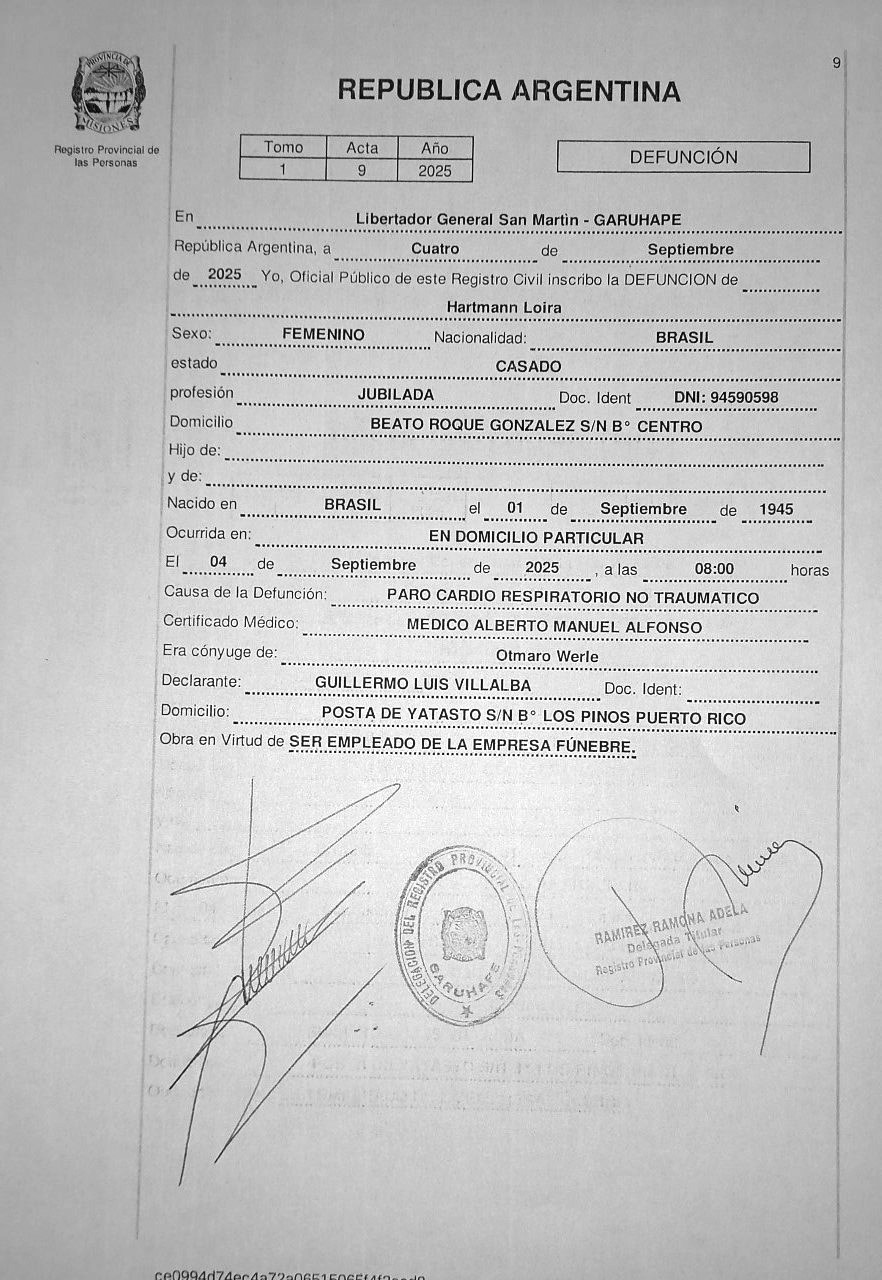 9
PROVINCIA DE
MISIONES
Registro Provincial de
las Personas
REPUBLICA ARGENTINA
Tomo Acta Año
1 9 2025
DEFUNCIÓN
En Libertador General San Martin - GARUHAPE
República Argentina, a Cuatro de Septiembre
de 2025 Yo, Oficial Público de este Registro Civil inscribo la DEFUNCION de
Hartmann Loira
Sexo: FEMENINO Nacionalidad: BRASIL
estado CASADO
profesión JUBILADA Doc. Ident DNI: 94590598
Domicilio BEATO ROQUE GONZALEZ S/N B° CENTRO
Hijo de:
y de:
Nacido en BRASIL el 01 de Septiembre de 1945
Ocurrida en: EN DOMICILIO PARTICULAR
El 04 de Septiembre de 2025 , a las 08:00 horas
Causa de la Defunción: PARO CARDIO RESPIRATORIO NO TRAUMATICO
Certificado Médico: MEDICO ALBERTO MANUEL ALFONSO
Era cónyuge de: Otmaro Werle
Declarante: GUILLERMO LUIS VILLALBA Doc. Ident:
Domicilio: POSTA DE YATASTO S/N B° LOS PINOS PUERTO RICO
Obra en Virtud de SER EMPLEADO DE LA EMPRESA FÚNEBRE.
DELEGACION DEL REGISTRO PROVINCIAL DE LAS PERSONAS
GARUHAPE
RAMIREZ RAMONA ADELA
Delegada Titular
Registro Provincial de las Personas